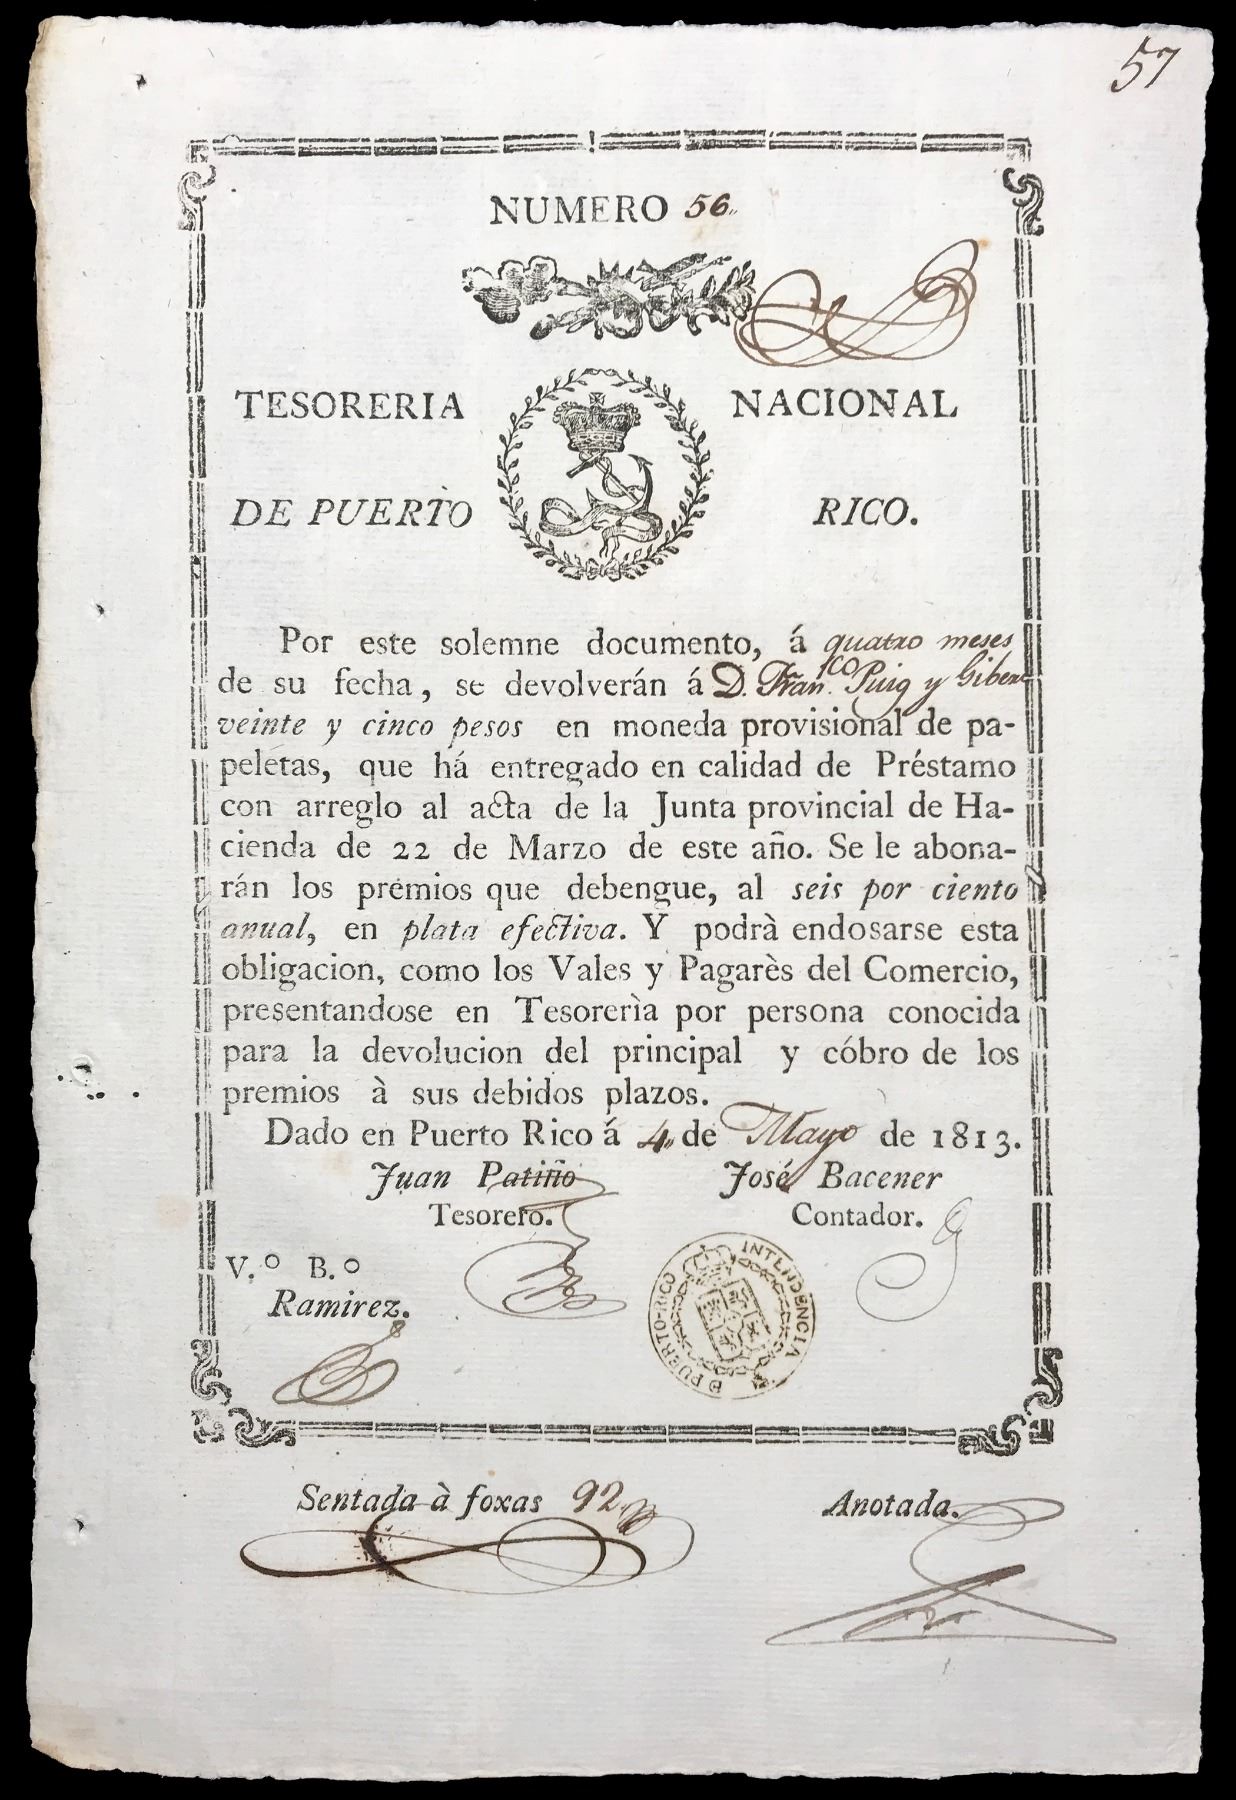 57
NUMERO 56
TESORERIA NACIONAL
DE PUERTO RICO.
Por este solemne documento, á quatro meses
de su fecha, se devolverán á D. Fran.co Puig y Gibert
veinte y cinco pesos en moneda provisional de pa-
peletas, que há entregado en calidad de Préstamo
con arreglo al acta de la Junta provincial de Ha-
cienda de 22 de Marzo de este año. Se le abona-
rán los premios que debengue, al seis por ciento
anual, en plata efectiva. Y podrà endosarse esta
obligacion, como los Vales y Pagarès del Comercio,
presentandose en Tesorerìa por persona conocida
para la devolucion del principal y cóbro de los
premios à sus debidos plazos.
Dado en Puerto Rico á 4 de Mayo de 1813.
Juan Patiño José Bacener
Tesorero. Contador.
V.º B.º
Ramirez.
INTENDENCIA D PUERTO-RICO
Sentada à foxas 92 Anotada.